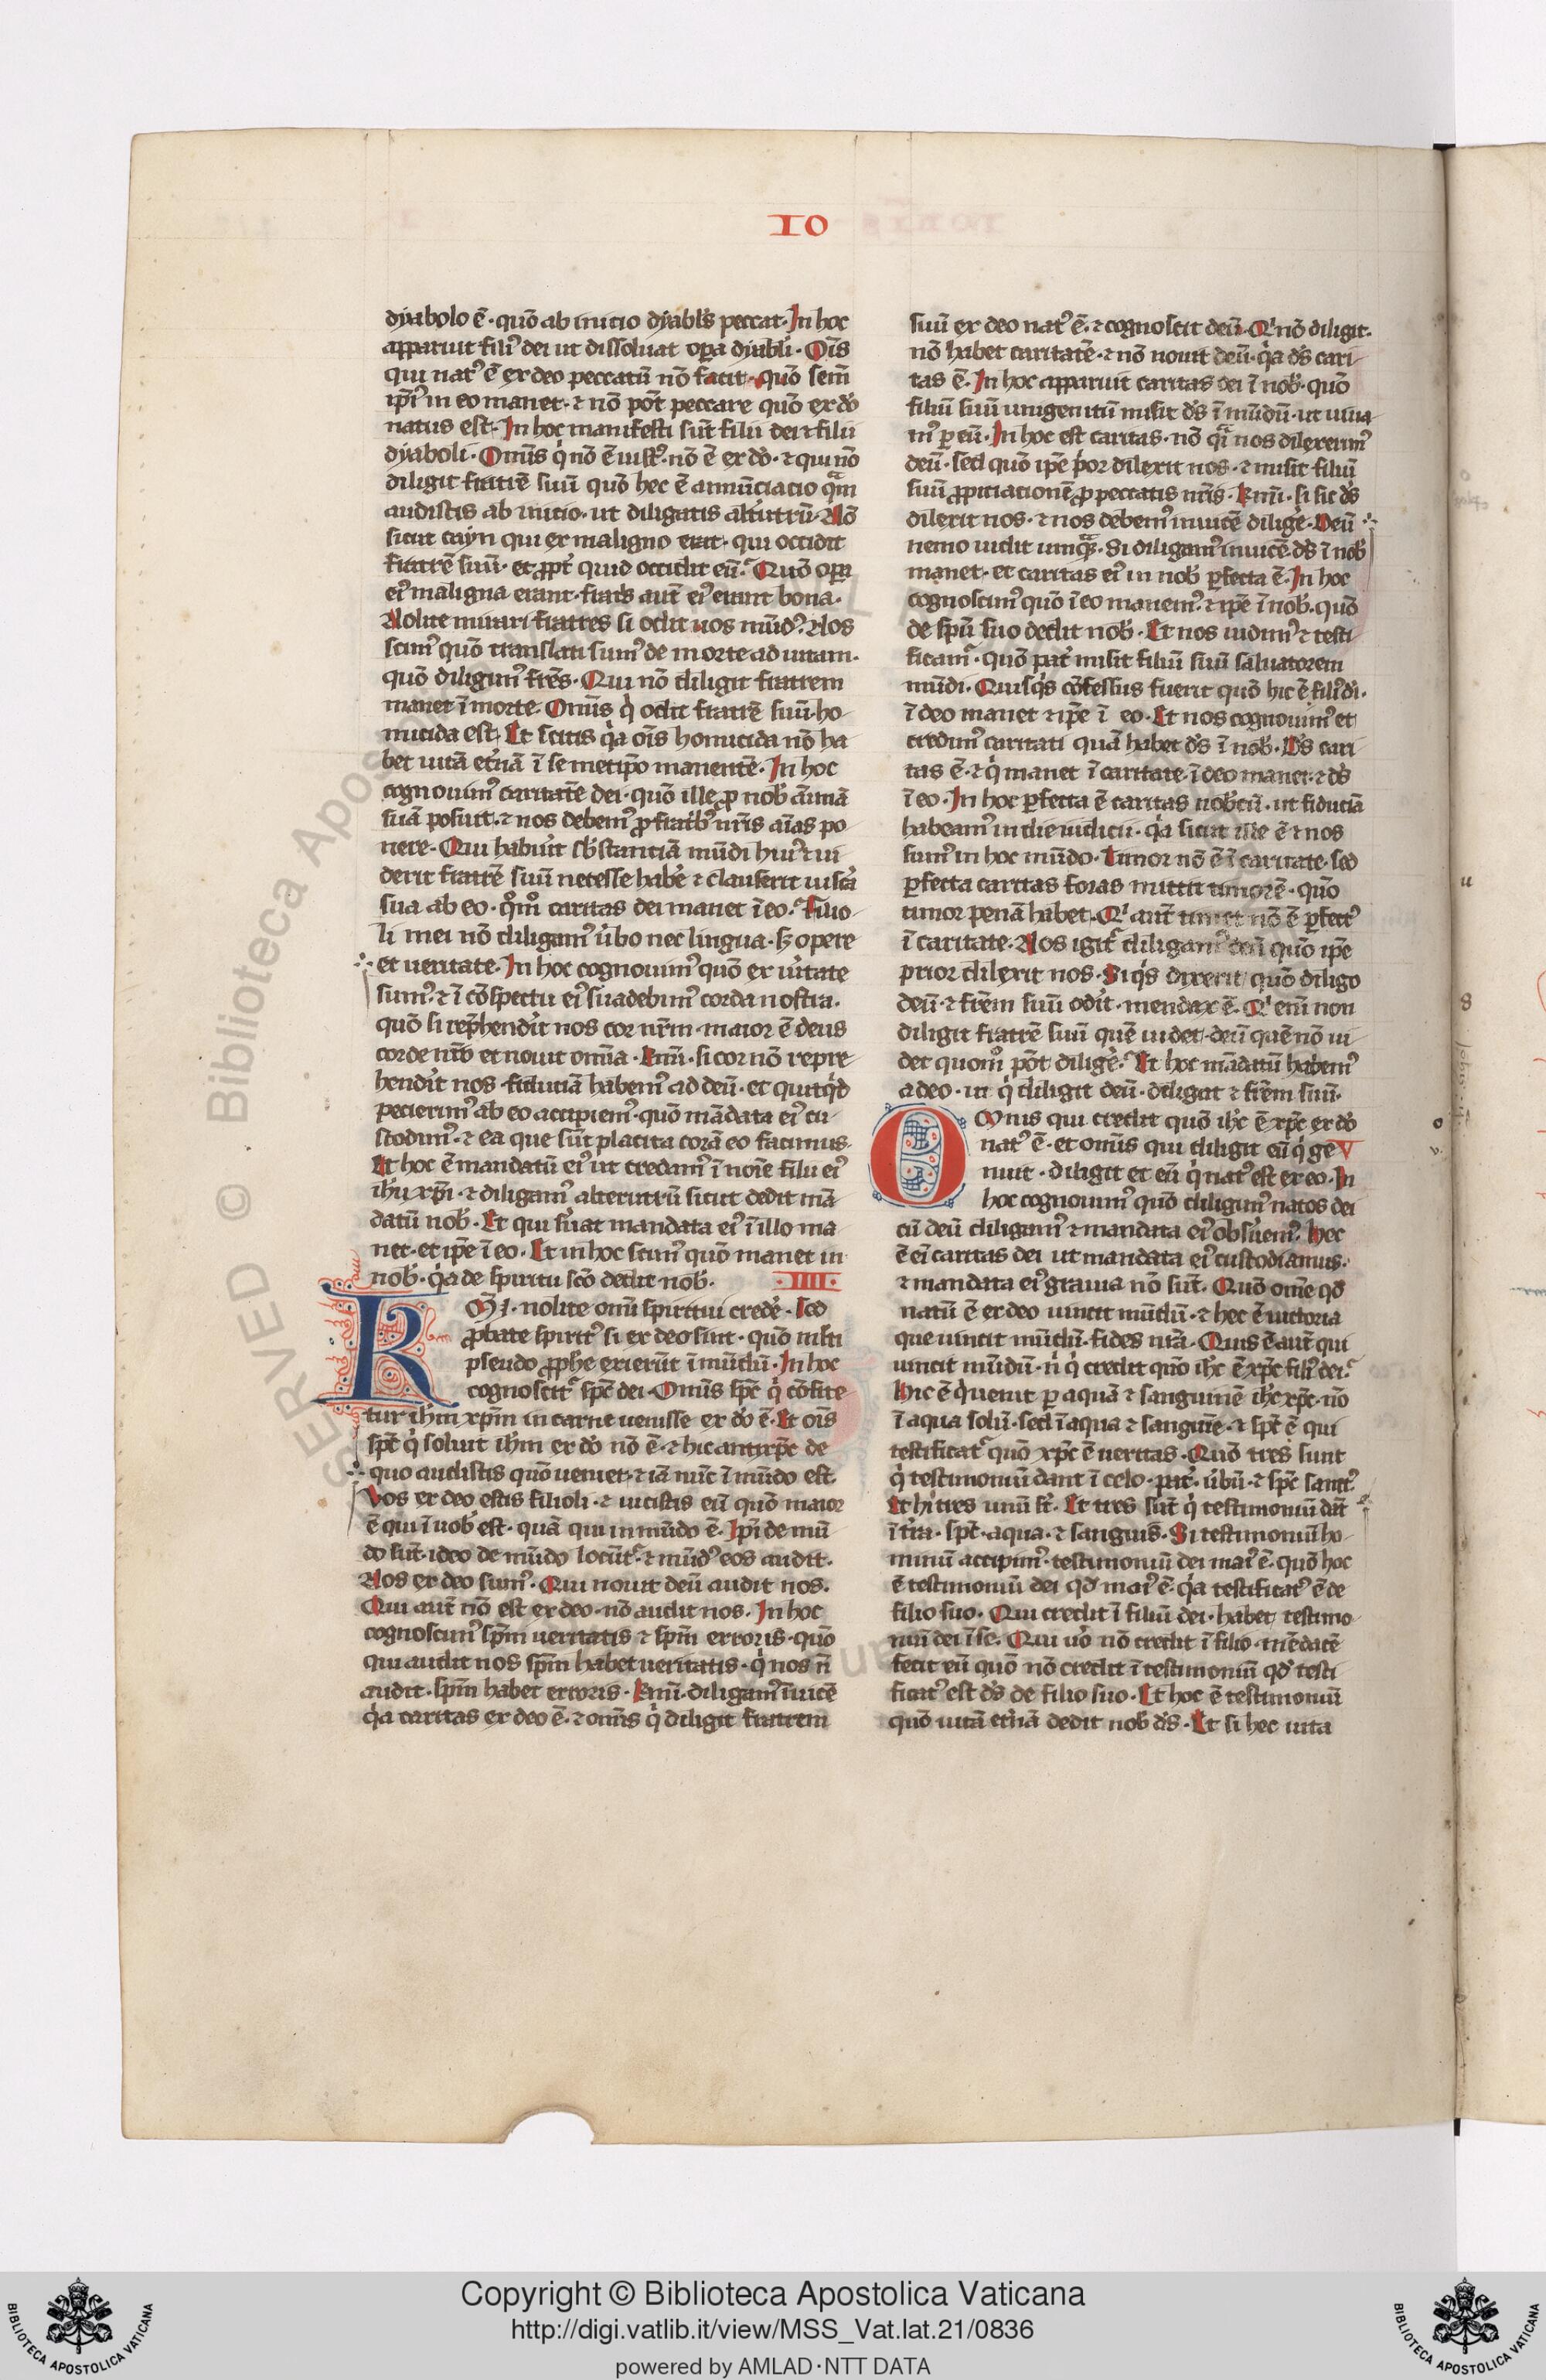 IO
dyabolo ē· quō ab inicio dyabl's peccat· In hoc
apparuit fili᷒ dei ut dissoluat opa dyabli· Oīs
qui nat᷒ ē ex deo peccatū nō facit· quō semē
ipi᷒ in eo manet· ⁊ nō pōt peccare quō ex dō
natus est· In hoc manifesti sūt filii dei ⁊ filii
dyaboli· Omīs q̇ nō ē iust᷒· nō ē ex dō· ⁊ qui nō
diligit fratrē suū quō hec ē annūciacio quā
audistis ab inicio· ut diligatis altutrū· Nō
sicut cayn qui ex maligno erat· qui occidit
fratrē suū· et ꝓpt̓ quid occidit eū? Quō opa
ei᷒ maligna erant· frats aut̄ ei᷒ erant bona·
Nolite mirari fratres si odit uos mūd᷒· Nos
scim᷒ quō translati sum᷒ de morte ad uitam·
quō diligim᷒ frēs· Qui nō diligit fratrem
manet ī morte· Omīs q̇ odit fratrē suū· ho-
micida est· Et scitis q̇a oīs homicida nō ha
bet uitā et̓nā ī semetipō manentē· In hoc
cognouim᷒ caritatē dei· quō ille ꝓ nob̓ aīmā
suā posuit· ⁊ nos debem᷒ ꝓ fratb᷒ nr̄is aīas po
nere· Qui habu̓it sb̓stantiā mūdi hui᷒ ⁊ ui
derit fratrē suū necesse habe̓ ⁊ clauserit uisc̓a
sua ab eo· qm̊o caritas dei manet ī eo? Filio-
li mei nō diligam᷒ u̓bo nec lingua· sꝫ opere
et ueritate· In hoc cognouim᷒ quō ex u̓itate
sum᷒· ⁊ ī cōspectu ei᷒ suadebim᷒ corda nostra·
quō si rep̄hendit̓ nos cor nr̄m· maior ē deus
corde nr̄o et nouit omīa· Kmī· si cor nō repre-
hendit̓ nos· fiduciā habem᷒ ad deū· et quitq̇d
pecierim᷒ ab eo accipiem᷒· quō mādata ei᷒ cu-
stodim᷒· ⁊ ea que sūt placita corā eo facimus·
Et hoc ē mandatū ei᷒ ut credam᷒ ī noīe filii ei᷒
ih̄u xp̄i· ⁊ diligam᷒ alterutrū sicut dedit mā-
datū nob̓· Et qui su̓at mandata ei᷒ ī illo ma-
net· et ip̄e ī eo· Et in hoc scim᷒ quō manet in
nob̓· q̇a de spiritu scō dedit nob̓· ·IIII·
Kmī· nolite omī spiritui crede̓· Sed
ꝓbate spirit᷒ si ex deo sint· quō mlti
pseudo ꝓphe exierūt ī mūdū· In hoc
cognoscit᷑ spc̄ dei· Omīs spc̄ q̇ cōfite-
tur ih̄m xp̄m in carne uenisse ex dō ē· Et oīs
spc̄ q̇ soluit ih̄m ex dō nō ē· ⁊ hic antixp̄c de
quo audistis quō ueniet· ⁊ iā nūc ī mūdo est·
Vos ex deo estis filioli· ⁊ uicistis eū quō maior
ē qui ī uob̓ est· quā qui in mūdo ē· Ipi de mū
do sūt· ideo de mūdo locūt᷑· ⁊ mūd᷒ eos audit·
Nos ex deo sum᷒· Qui nouit deū audit nos·
Qui aut̄ nō est ex deo· nō audit nos· In hoc
cognoscim᷒ spm̄ ueritatis ⁊ spm̄ erroris· quō
qui audit nos spm̄ habet ueritatis· q̇ nos n̄
audit· spm̄ habet erroris· Kmī· diligam᷒ īuicē
q̇a caritas ex deo ē· ⁊ omīs q̇ diligit fratrem
suū ex deo nat᷒ ē· ⁊ cognoscit deū· Q̇ nō diligit·
nō habet caritatē· ⁊ nō nouit deū· q̇a ds̄ cari-
tas ē· In hoc apparuit caritas dei ī nob̓· quō
filiū suū unigenitū misit ds̄ ī mūdū· ut uiua-
m᷒ ꝑ eū· In hoc est caritas· nō q̄i nos dilexerim᷒
deū· sed quō ip̄e p̓or dilexit nos· ⁊ misit filiū
suū ꝓpiciationē ꝓ peccatis nr̄is· Kmī· si sic ds̄
dilexit nos· ⁊ nos debem᷒ inuicē dilige̓· Deū
nemo uidit umq̄ꝫ· Si diligam᷒ inuicē· ds̄ ī nob̓
manet· et caritas ei᷒ in nob̓ ꝑfecta ē· In hoc
cognoscim᷒ quō ī eo manem᷒· ⁊ ip̄e ī nob̓· quō
de spū suo dedit nob̓· Et nos uidim᷒ ⁊ testi
ficam᷑· quō pat̓ misit filiū suū saluatorem
mūdi· Quisq̇s cōfessus fuerit quō hic ē fili᷒ di·
ī deo manet ⁊ ip̄e ī eo· Et nos cognouim᷒ et
credim᷒ caritati quā habet ds̄ ī nob̓· Ds̄ cari-
tas ē· ⁊ q̇ manet ī caritate· ī deo manet· ⁊ ds̄
ī eo· In hoc ꝑfecta ē caritas nob̓cū· ut fiduciā
habeam᷒ in die iudicii· q̇a sicut ille ē ⁊ nos
sum᷒ in hoc mūdo· Timor nō ē ī caritate· sed
ꝑfecta caritas foras mittit timorē· quō
timor penā habet· Q̇ aut̄ timet nō ē ꝑfect᷒
ī caritate· Nos igit᷑ diligam᷒ deū quō ip̄e
prior dilexit nos· Si q̇s dixerit quō diligo
deū· ⁊ fr̄em suū odit̓· mendax ē· Q̇ enī non
diligit fratrē suū quē uidet· deū quē nō ui-
det quom̊ pōt dilige̓? Et hoc mādatū habem᷒
a deo· ut q̇ diligit deū· diligat ⁊ fr̄em suū·
Omnis qui credit quō ih̄c ē xp̄c ex dō
nat᷒ ē· et omīs qui diligit eū q̇ ge V
nuit· diligit et eū q̇ nat᷒ est ex eo· In
hoc cognouim᷒ quō diligim᷒ natos dei
cū deū diligam᷒ ⁊ mandata ei᷒ obsu̓em᷒· Hec
ē ei̅ caritas dei ut mandata ei᷒ custodiamus·
⁊ mandata ei᷒ grauia nō sūt· Quō om̄e qd̄
natū ē ex deo uincit mūdū· ⁊ hec ē uictoria
que uincit mūdū· fides nr̄a· Quis ē aut̄ qui
uincit mūdū· n̓ q̇ credit quō ih̄c ē xp̄c fili᷒ dei?
Hic ē q̇ uenit ꝑ aquā ⁊ sanguinē ih̄c xp̄c· nō
ī aqua solū· sed ī aqua ⁊ sanguīe· ⁊ spc̄ ē qui
testificat᷑ quō xp̄c ē ueritas· Quō tres sunt
q̇ testimoniū dant ī celo· pat̓· u̓bū· ⁊ spc̄ sanct᷒·
Et hi tres unū st̄· Et tres sūt q̇ testimoniū dāt
ī t̓ra· spc̄· aqua· ⁊ sanguis· Si testimoniū ho-
minū accipim᷒· testimoniū dei mai᷒ ē· quō hoc
ē testimoniū dei qd̄ mai᷒ ē· q̇a testificat᷒ ē de
filio suo· Qui credit ī filiū dei· habet testimo-
niū dei ī se· Qui uō nō credit ī filio· mēdacē
fecit eū quō nō credit ī testimoniū qd̄ testi
ficat᷒ est ds̄ de filio suo· Et hoc ē testimoniū
quō uitā et̓nā dedit nob̓ ds̄· Et si hec uita
Copyright © Biblioteca Apostolica Vaticana
http://digi.vatlib.it/view/MSS_Vat.lat.21/0836
powered by AMLAD·NTT DATA
BIBLIOTECA APOSTOLICA VATICANA
BIBLIOTECA APOSTOLICA VATICANA